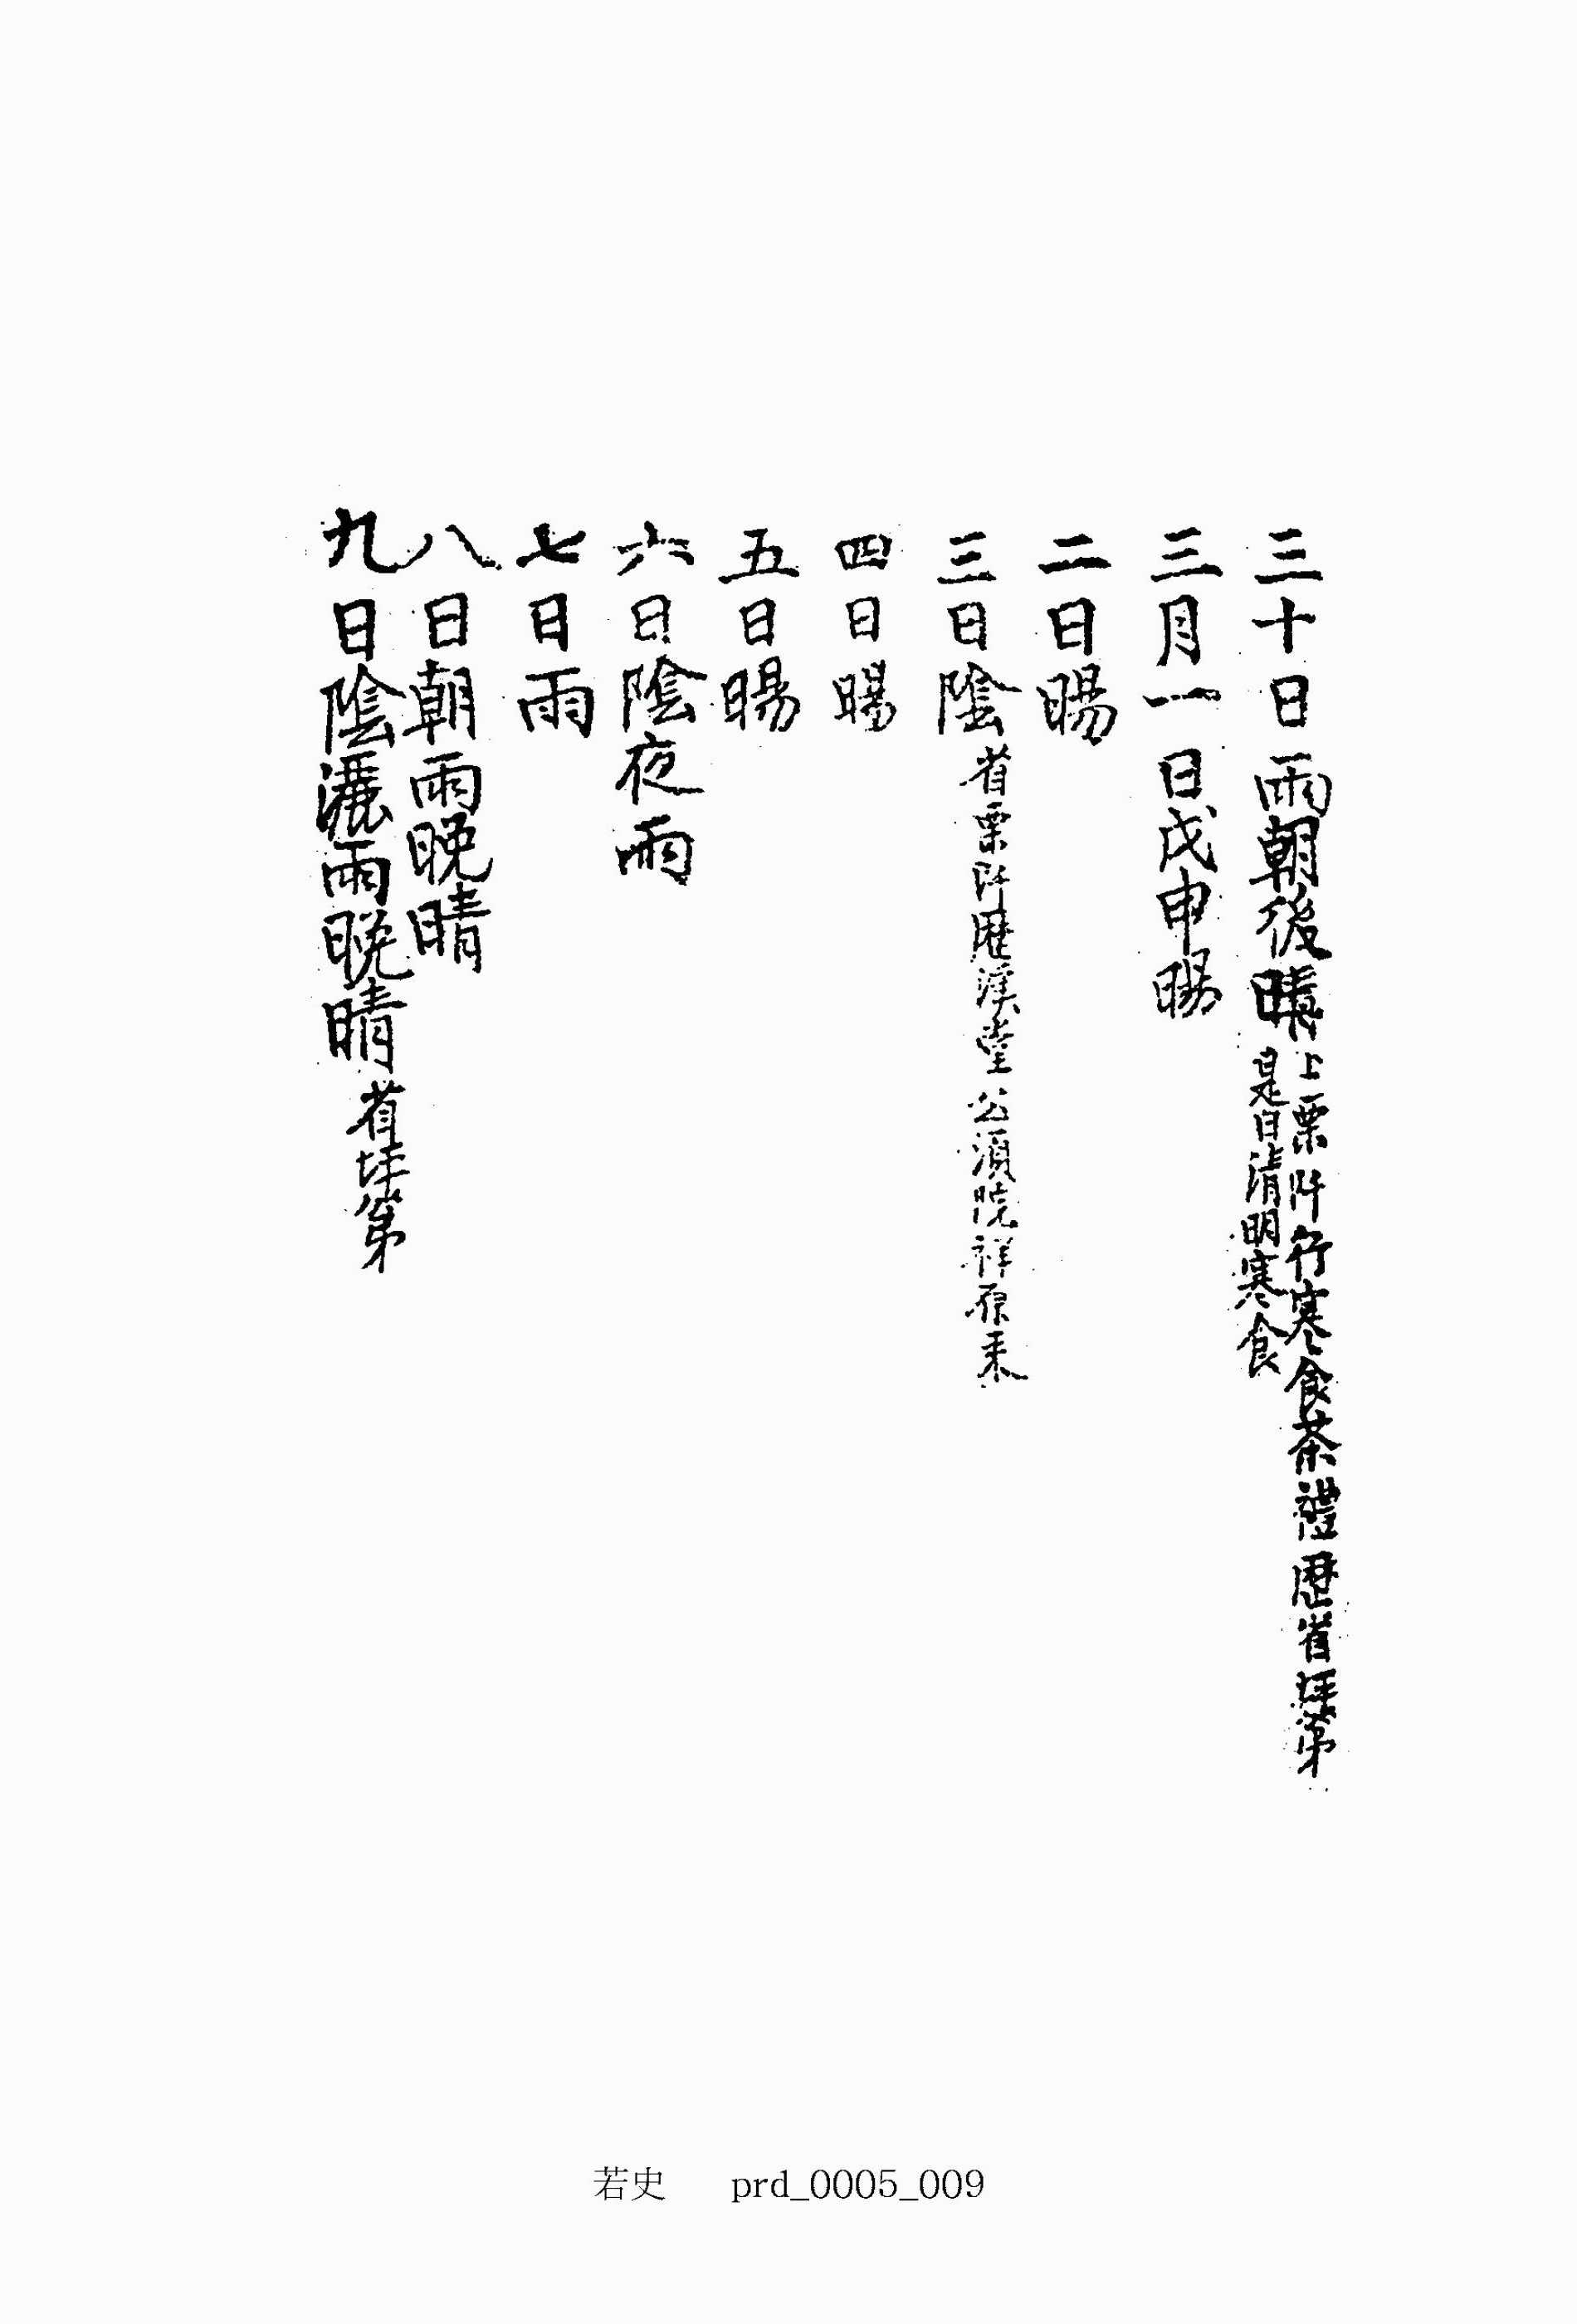 三十日雨朝後晴上栗阡行寒食茶禮歷省坪第
是日清明寒食
三月一日戊申暘
二日暘
三日陰省栗阡歷溪堂公須院祥原來
四日暘
五日暘
六日陰夜雨
七日雨
八日朝雨晩晴
九日陰灑雨晩晴省坪第
若史 prd_0005_009